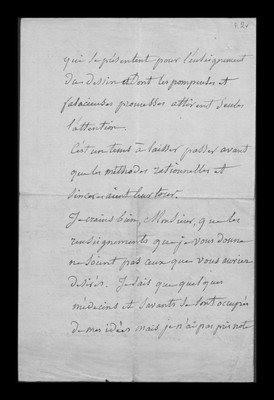 qui se présentent pour l'enseignement
du dessin et dont les pompeuses et
falacieuses promesses attirent seules
l'attention.
C'est un tems à laisser passer avant
que les méthodes rationnelles et
sincères aient leur tour.
Je crains bien, Monsieur, que les
renseignements que je vous donne
ne soient pas ceux que vous auriez
desirés. Je sais que quelques
medecins et savants se sont occupés
de mes idées mais je n'ai pas pris not